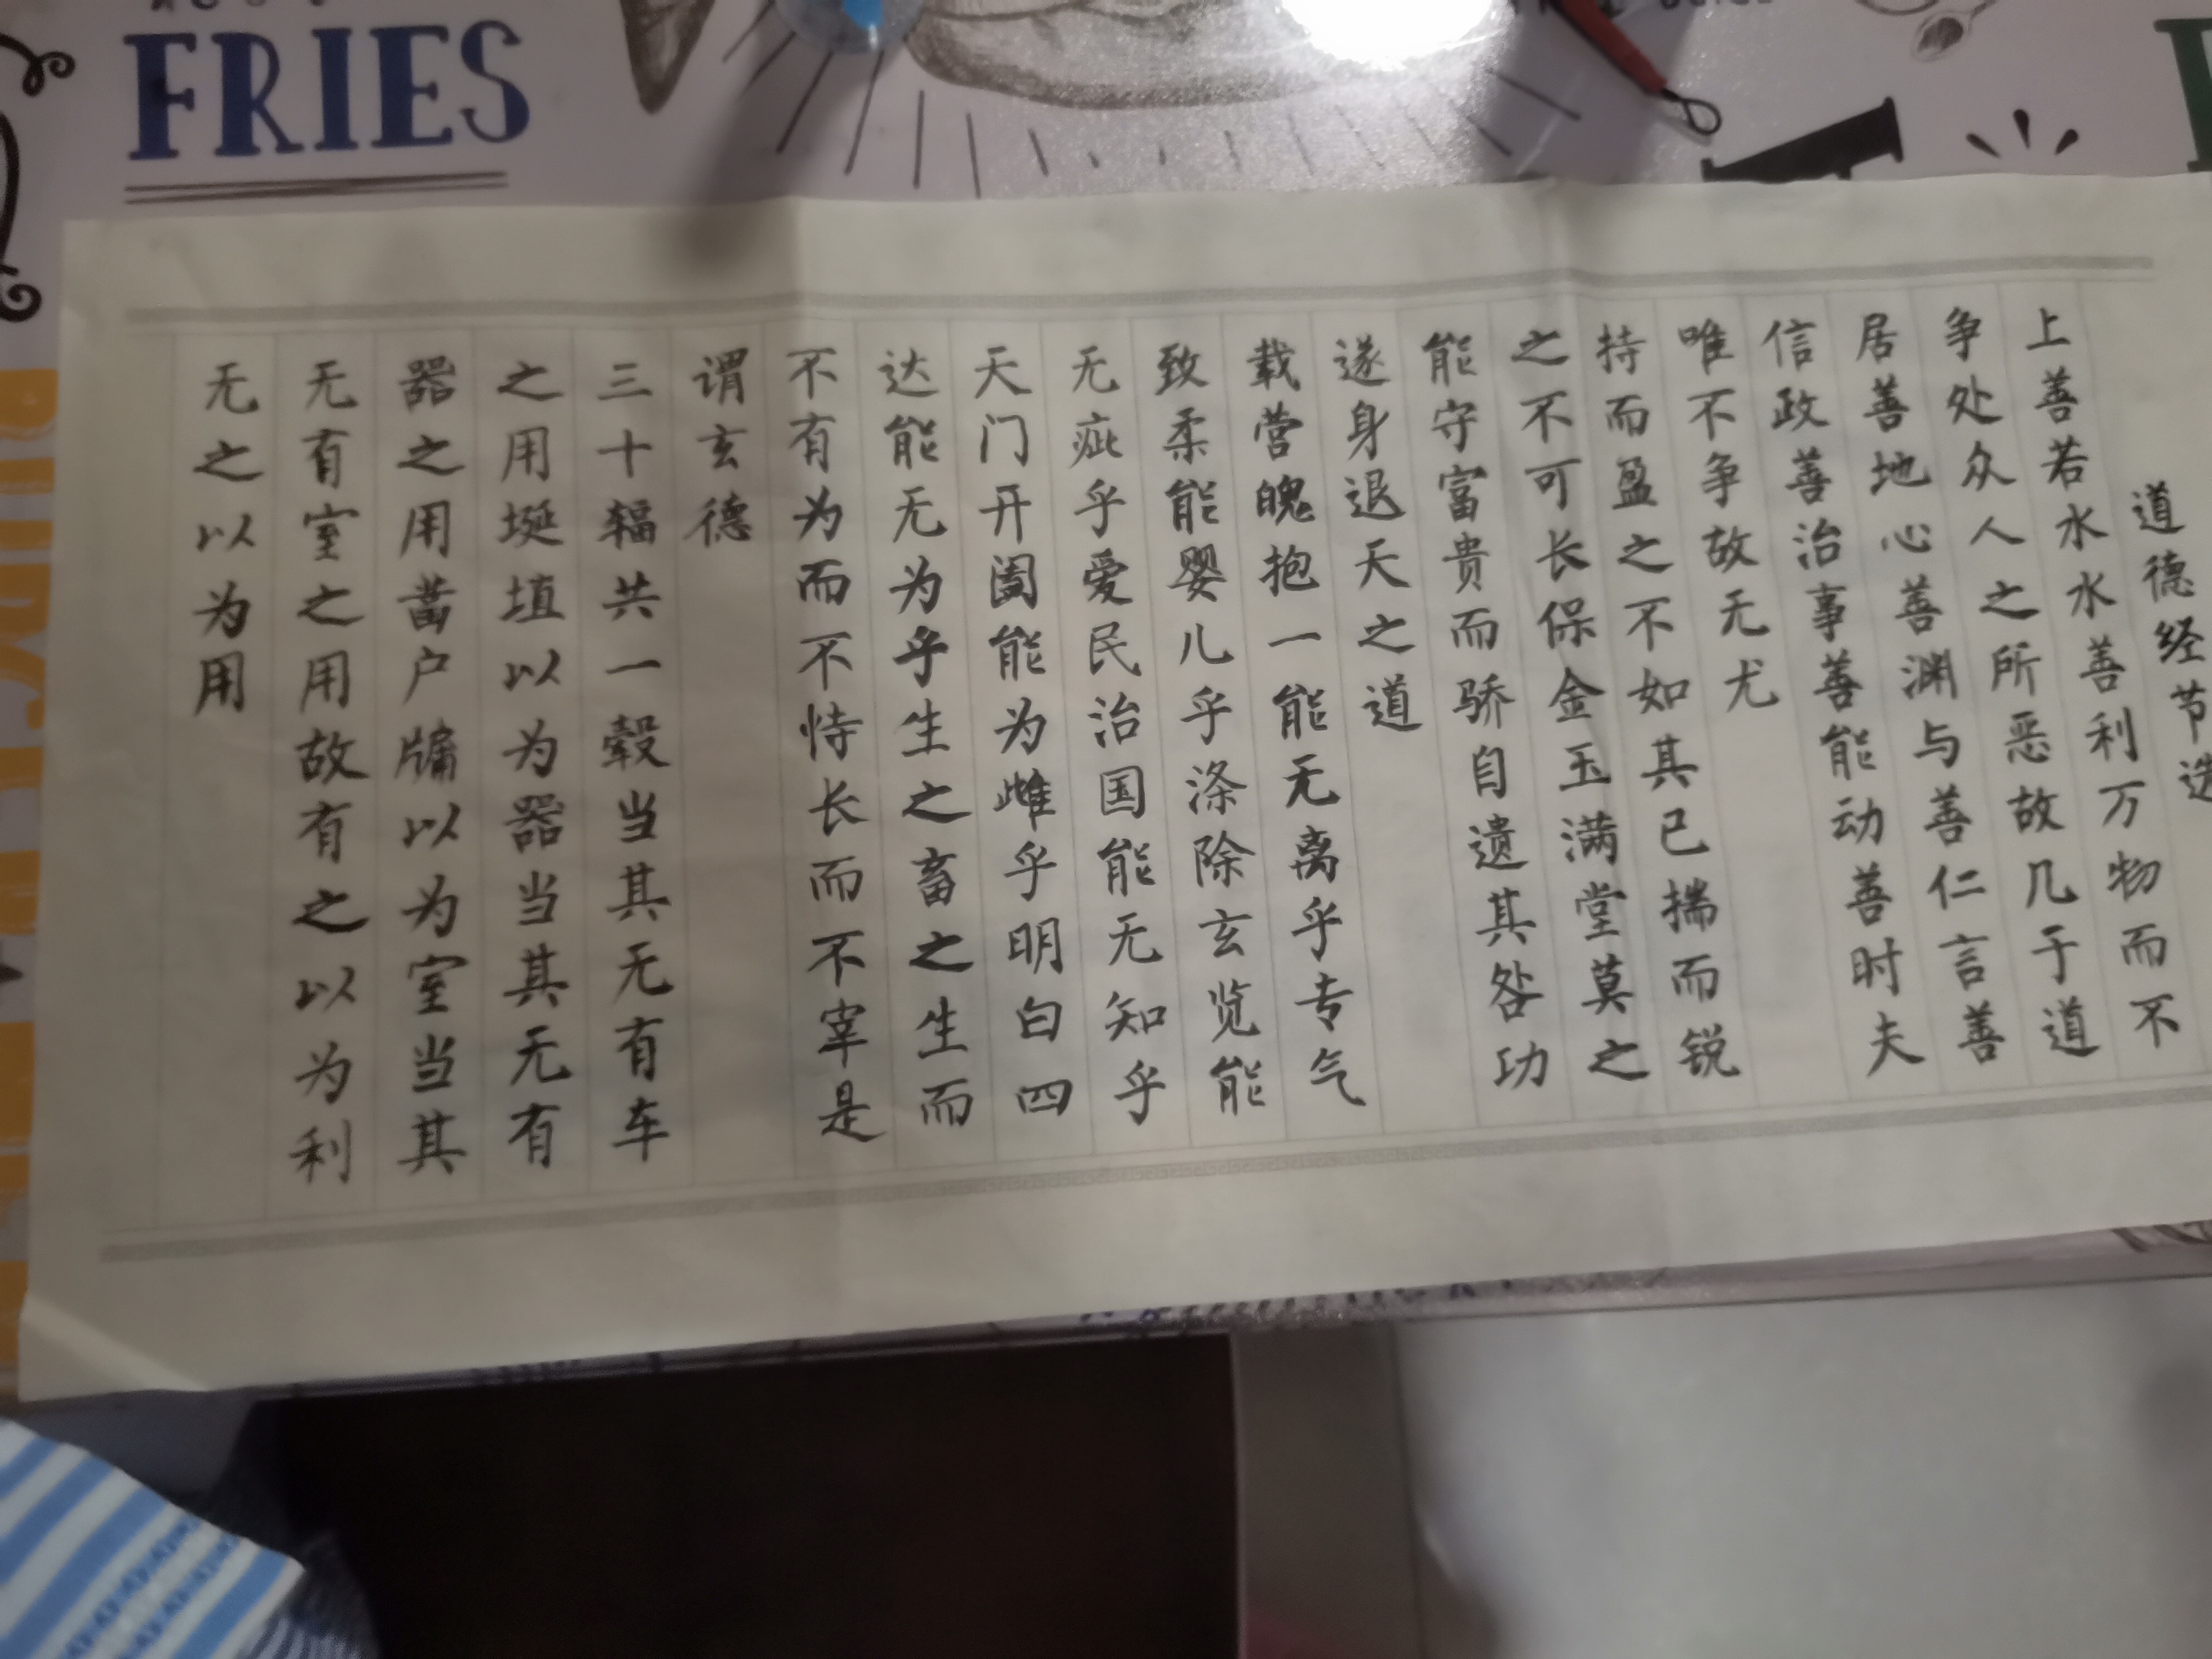 FRIES
道德经节选
上善若水水善利万物而不
争处众人之所恶故几于道
居善地心善渊与善仁言善
信政善治事善能动善时夫
唯不争故无尤
持而盈之不如其已揣而锐
之不可长保金玉满堂莫之
能守富贵而骄自遗其咎功
遂身退天之道
载营魄抱一能无离乎专气
致柔能婴儿乎涤除玄览能
无疵乎爱民治国能无知乎
天门开阖能为雌乎明白四
达能无为乎生之畜之生而
不有为而不恃长而不宰是
谓玄德
三十辐共一毂当其无有车
之用埏埴以为器当其无有
器之用凿户牖以为室当其
无有室之用故有之以为利
无之以为用